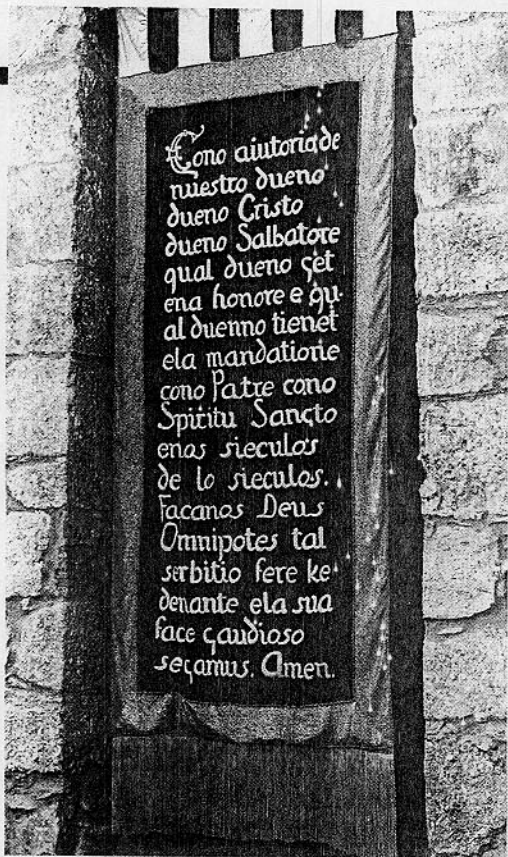 Cono aiutorio de
nuestro dueno
dueno Cristo
dueno Salbatore
qual dueno get
ena honore e qu-
al duenno tienet
ela mandatione
cono Patre cono
Spiritu Sancto
enos sieculos
de lo sieculos.
Facanos Deus
Omnipotes tal
serbitio fere ke
denante ela sua
face gaudioso
segamus. Amen.